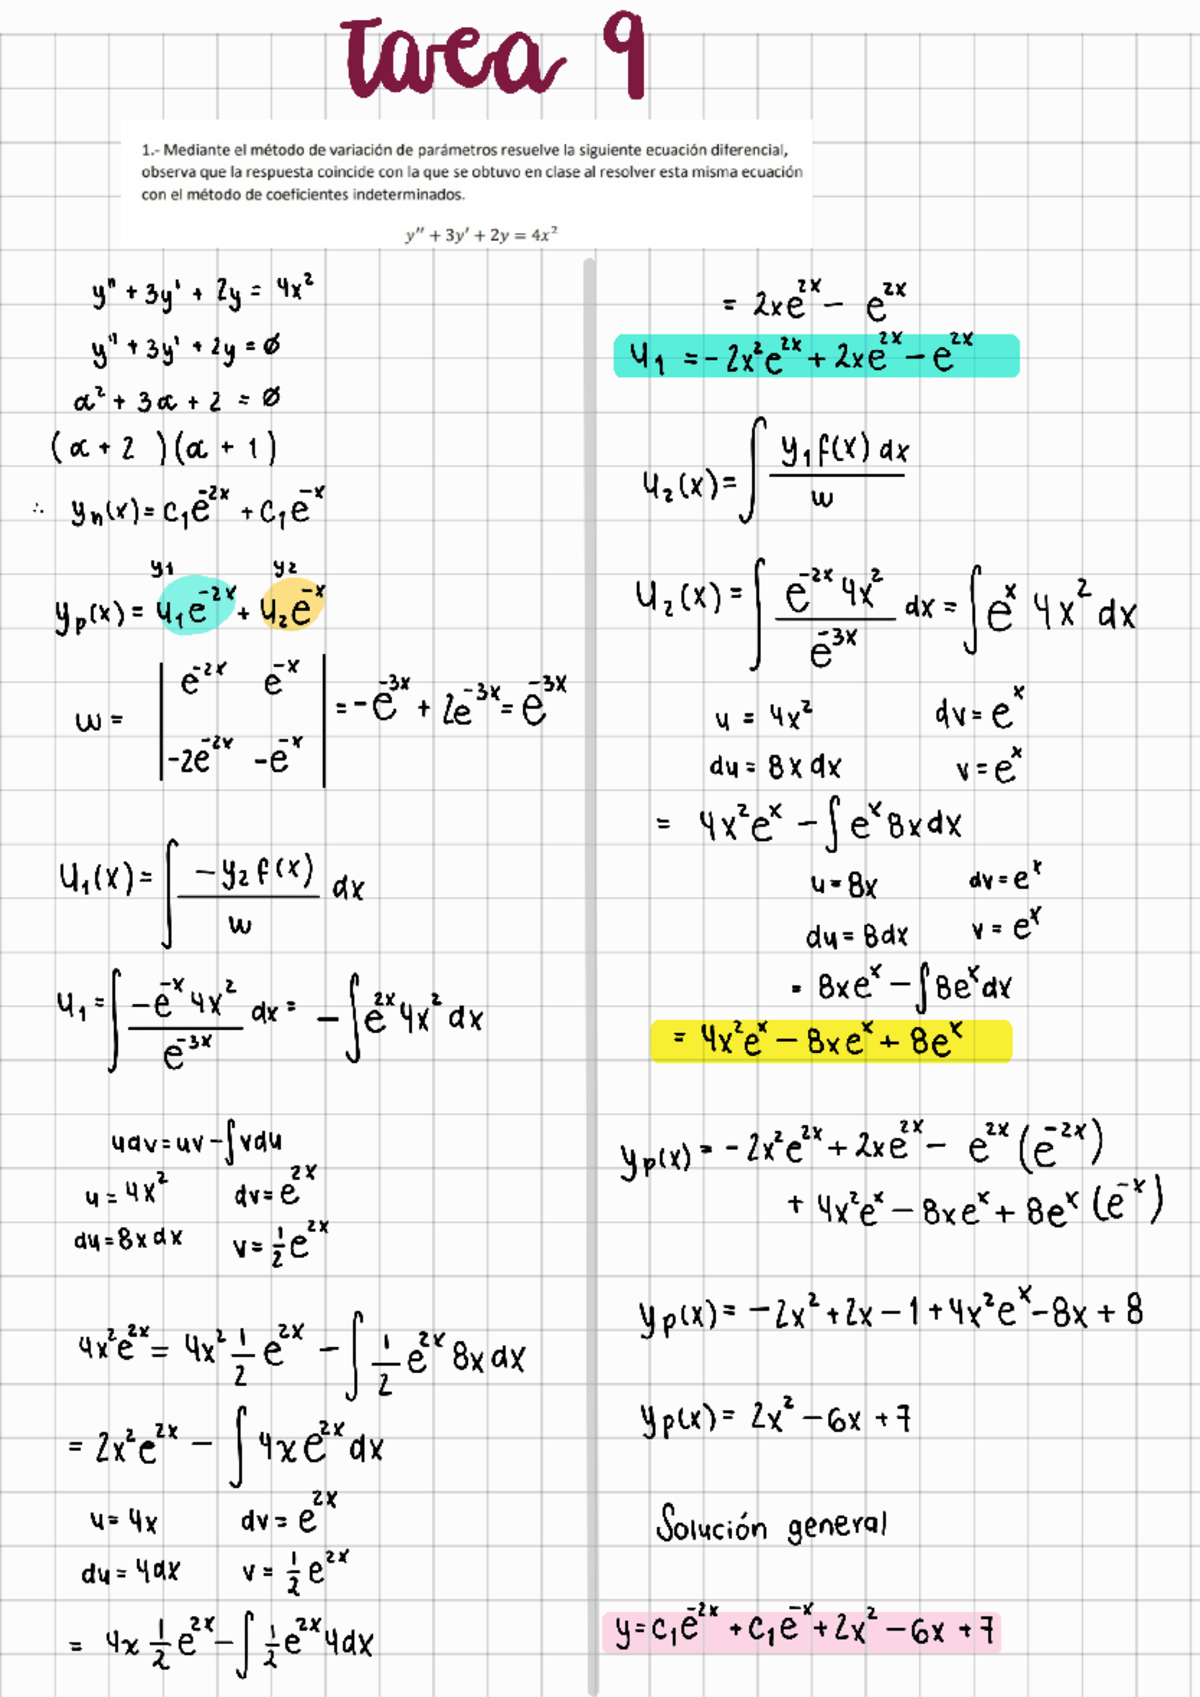 Tarea 9
1.- Mediante el método de variación de parámetros resuelve la siguiente ecuación diferencial,
observa que la respuesta coincide con la que se obtuvo en clase al resolver esta misma ecuación
con el método de coeficientes indeterminados.
y'' + 3y' + 2y = 4x²
y'' + 3y' + 2y = 4x²
y'' + 3y' + 2y = ∅
α² + 3α + 2 = ∅
(α + 2 )(α + 1)
∴ yₕ(x) = C₁e⁻²ˣ + C₁e⁻ˣ
y₁ y₂
yₚ(x) = u₁e⁻²ˣ + u₂e⁻ˣ
w = | e⁻²ˣ e⁻ˣ | = -e⁻³ˣ + 2e⁻³ˣ = e⁻³ˣ
| -2e⁻²ˣ -e⁻ˣ |
u₁(x) = ∫ -y₂ f(x) / w dx
u₁ = ∫ -e⁻ˣ 4x² / e⁻³ˣ dx = - ∫ e²ˣ 4x² dx
udv = uv - ∫ vdu
u = 4x² dv = e²ˣ
du = 8x dx v = 1/2 e²ˣ
4x²e²ˣ = 4x² 1/2 e²ˣ - ∫ 1/2 e²ˣ 8x dx
= 2x²e²ˣ - ∫ 4x e²ˣ dx
u = 4x dv = e²ˣ
du = 4dx v = 1/2 e²ˣ
= 4x 1/2 e²ˣ - ∫ 1/2 e²ˣ 4dx
= 2xe²ˣ - e²ˣ
u₁ = -2x²e²ˣ + 2xe²ˣ - e²ˣ
u₂(x) = ∫ y₁ f(x) dx / w
u₂(x) = ∫ e⁻²ˣ 4x² / e⁻³ˣ dx = ∫ eˣ 4x² dx
u = 4x² dv = eˣ
du = 8x dx v = eˣ
= 4x²eˣ - ∫ eˣ 8x dx
u = 8x dv = eˣ
du = 8dx v = eˣ
= 8xeˣ - ∫ 8eˣ dx
= 4x²eˣ - 8xeˣ + 8eˣ
yₚ(x) = -2x²e²ˣ + 2xe²ˣ - e²ˣ (e⁻²ˣ)
+ 4x²eˣ - 8xeˣ + 8eˣ (e⁻ˣ)
yₚ(x) = -2x² + 2x - 1 + 4x²eˣ - 8x + 8
yₚ(x) = 2x² - 6x + 7
Solución general
y = C₁e⁻²ˣ + C₁e⁻ˣ + 2x² - 6x + 7